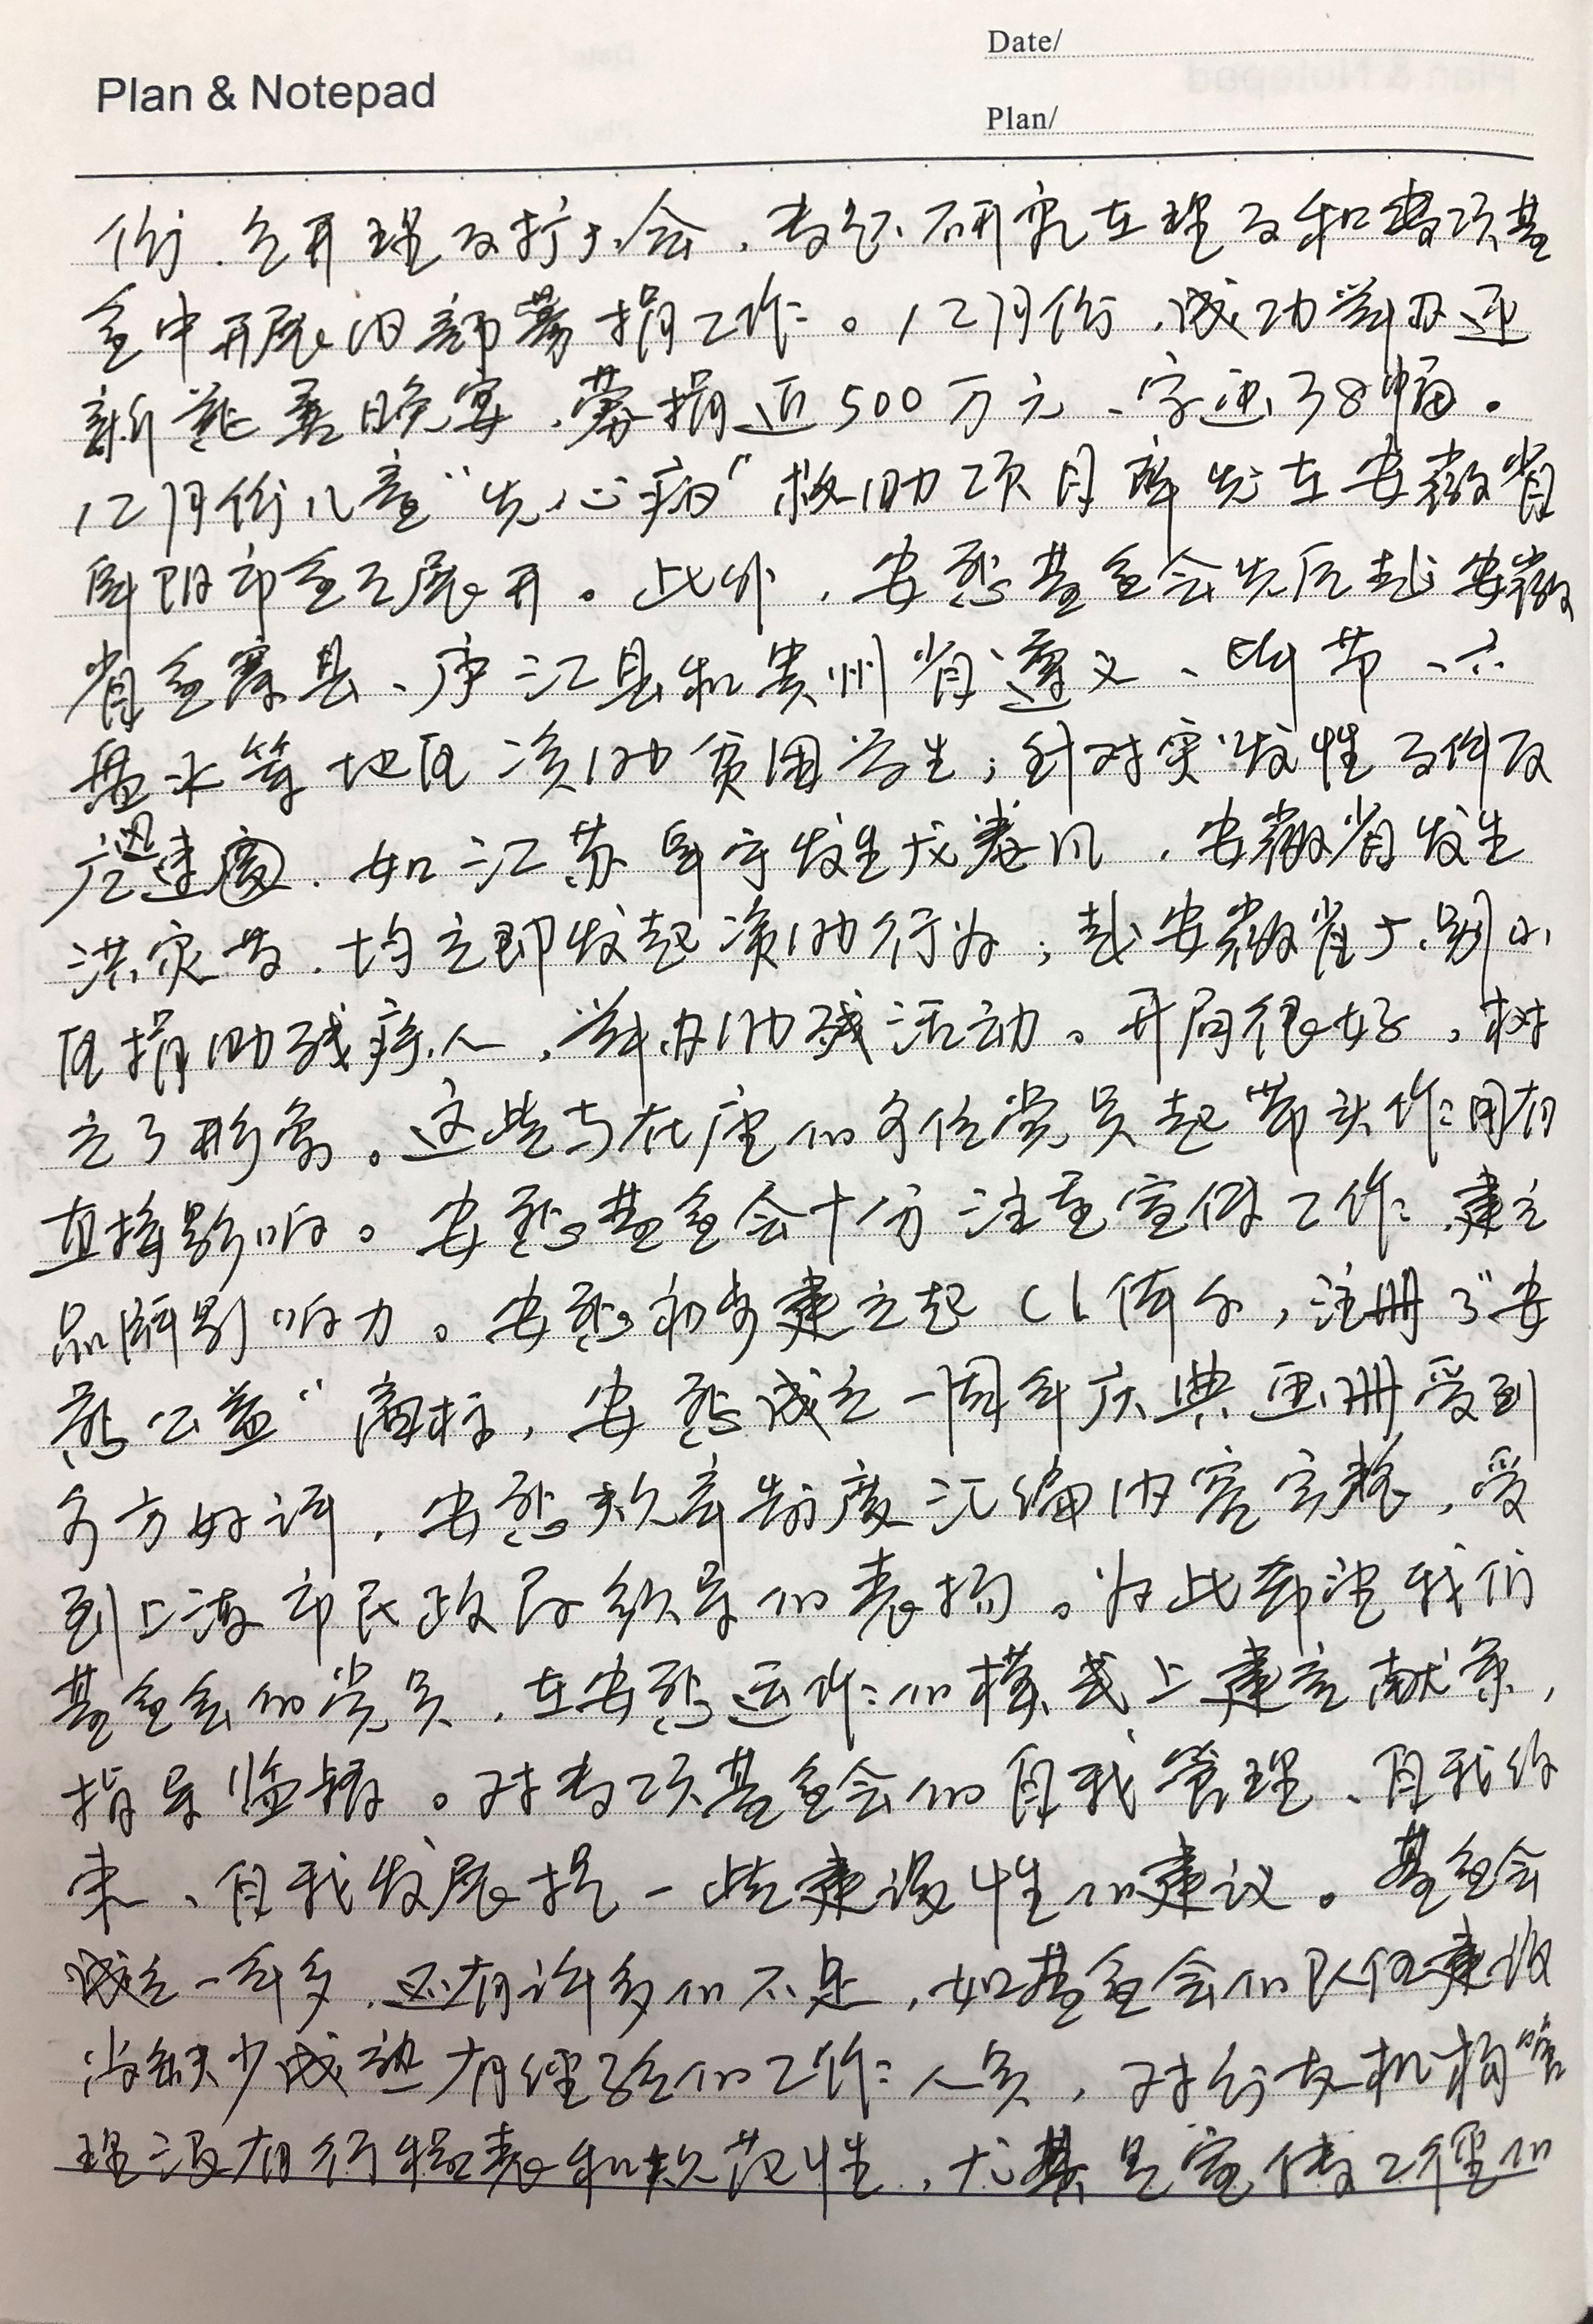 Plan & Notepad
Date/
Plan/
份，召开理事扩大会，专题研究在理事和专项基
金中开展内部募捐工作。12月份，成功举办迎
新慈善晚宴，募捐近500万元、字画38幅。
12月份儿童“先心病”救助项目率先在安徽省
阜阳市全面展开。此外，安慈基金会先后赴安徽
省金寨县、庐江县和贵州省遵义、毕节、六
盘水等地区资助贫困学生；针对突发性事件反
应迅速，如江苏阜宁发生龙卷风，安徽省发生
洪灾等，均立即发起资助行为；赴安徽省大别山
区捐助残疾人，举办助残活动。开局很好，树
立了形象。这些与在座的各位党员起带头作用有
直接影响。安慈基金会十分注重宣传工作，建立
品牌影响力。安慈初步建立起CI体系，注册了“安
慈公益”商标，安慈成立一周年庆典画册受到
多方好评，安慈规章制度汇编内容完整，受
到上海市民政局领导的表扬。为此希望我们
基金会的党员，在安慈运作的模式上建言献策，
指导监督。对专项基金会的自我管理、自我约
束、自我发展提一些建设性的建议。基金会
成立一年多，还有许多的不足，如基金会的队伍建设
尚缺少成熟有经验的工作人员，对分支机构管
理没有行程表和规范性，尤其是宣传工作的